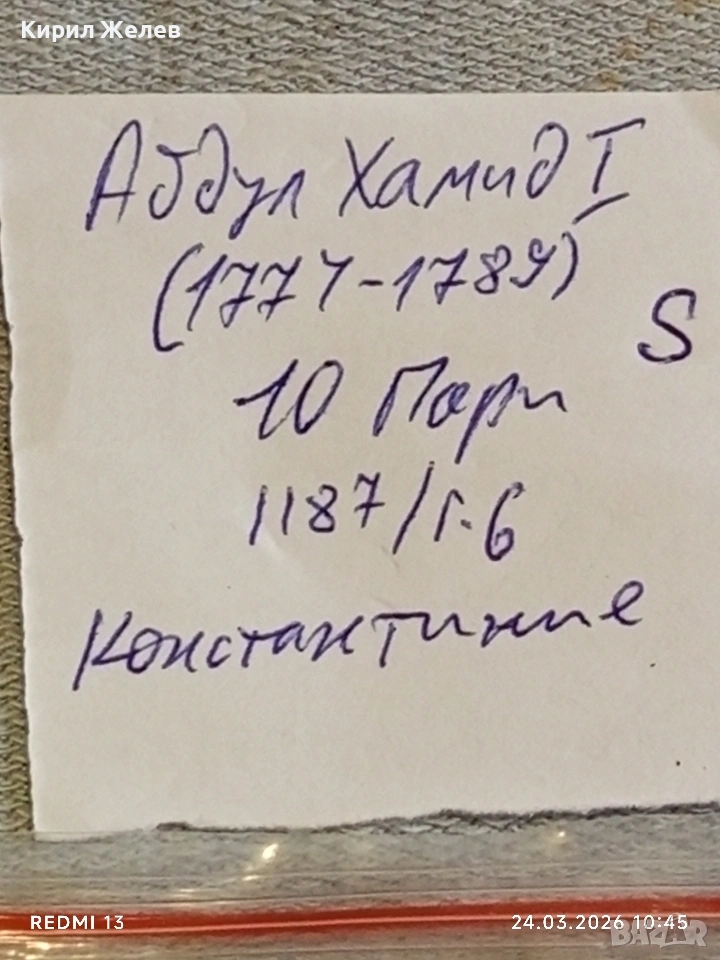 Кирил Желев
Абдул Хамид I
(1774-1789)
S
10 Пари
1187/г.6
Константиние
REDMI 13
24.03.2026 10:45
BAZAR